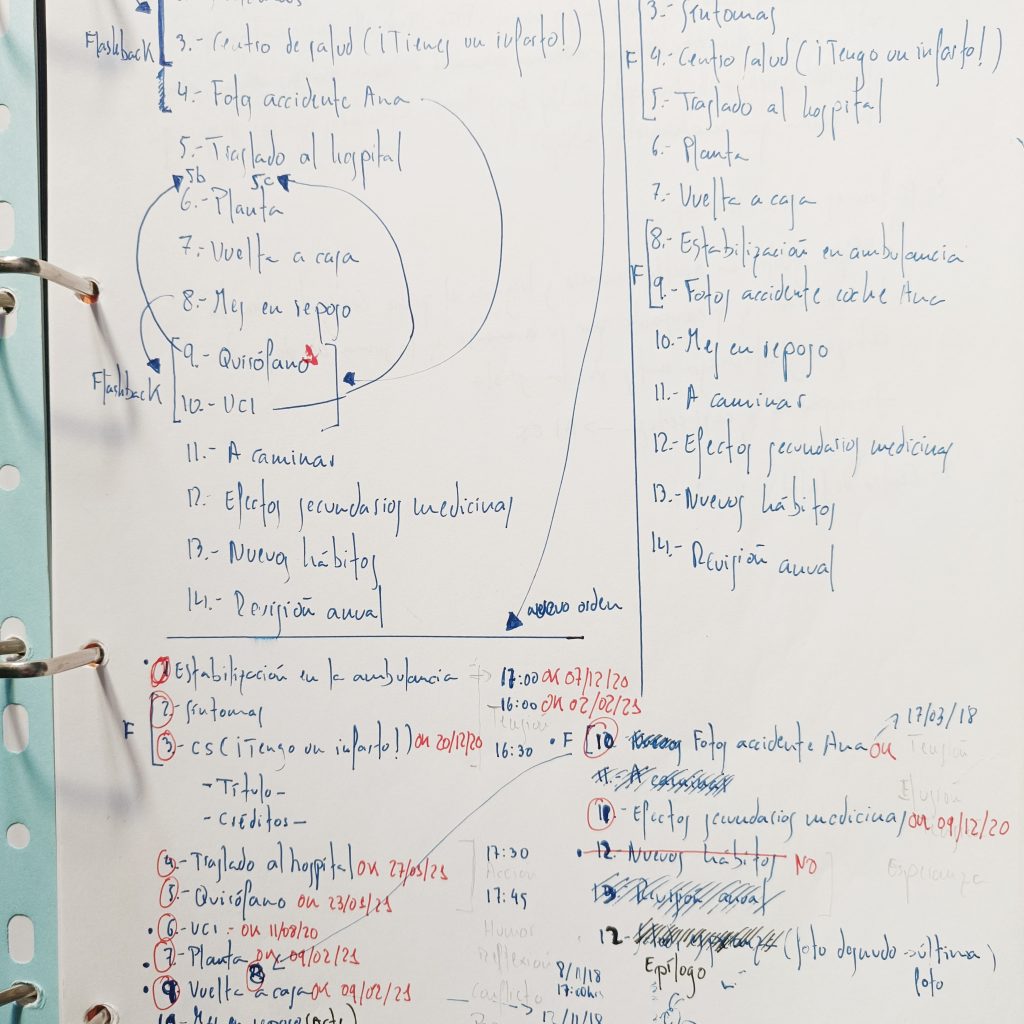 Flashback
3.- Centro de salud (¡Tienes un infarto!)
4.- Fotos accidente Ana
5.- Traslado al hospital
5b 5c
6.- Planta
7.- Vuelta a casa
8.- Mes en reposo
Flashback
9.- Quirófano
10.- UCI
11.- A caminar
12.- Efectos secundarios medicinas
13.- Nuevos hábitos
14.- Revisión anual
3.- Síntomas
F
4.- Centro salud (¡Tengo un infarto!)
5.- Traslado al hospital
6.- Planta
7.- Vuelta a casa
F
8.- Estabilización en ambulancia
9.- Fotos accidente coche Ana
10.- Mes en reposo
11.- A caminar
12.- Efectos secundarios medicinas
13.- Nuevos hábitos
14.- Revisión anual
nuevo orden
Estabilización en la ambulancia 17:00 OK 07/12/20
F
2.- Síntomas 16:00 OK 02/02/21
Tensión
3.- CS (¡Tengo un infarto!) OK 20/12/20 16:30
- Título -
- Créditos -
4.- Traslado al hospital OK 27/01/21 17:30
Acción
5.- Quirófano OK 23/01/21 17:45
6.- UCI - OK 11/08/20 Humor
7.- Planta OK 09/02/21 Reflexión
8
9 Vuelta a casa OK 09/02/21 Conflicto
8/11/18
17:00hrs
13/11/18
10.- Mes en reposo
17/03/18
F 10 Fotos accidente Ana OK Tensión
11.- A caminar
11.- Efectos secundarios medicinas OK 09/12/20
12.- Nuevos hábitos NO
Esperanza
Revisión anual
12- (foto desnudo → última foto)
Epílogo